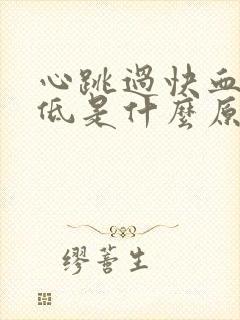 心跳過快血
低是什麼原
繆萻生